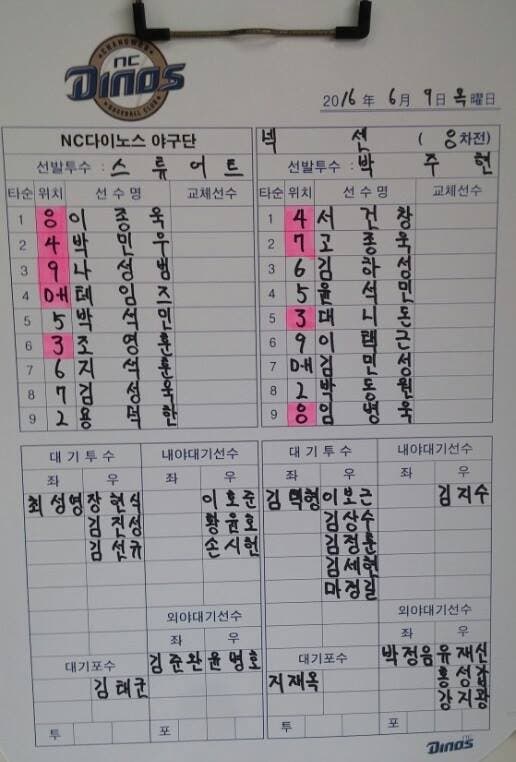 CHANGWON
NC
DINOS
BASEBALL CLUB
2016 年 6 月 9 日 목 曜日
NC다이노스 야구단
선발투수 : 스 튜 어 트
타순 위치 선 수 명 교체선수
1 8 이 종 욱
2 4 박 민 우
3 9 나 성 범
4 DH 테 임 즈
5 5 박 석 민
6 3 조 영 훈
7 6 지 석 훈
8 7 김 성 욱
9 2 용 덕 한
넥 센 ( 8 차전)
선발투수 : 박 주 현
타순 위치 선 수 명 교체선수
1 4 서 건 창
2 7 고 종 욱
3 6 김 하 성
4 5 윤 석 민
5 3 대 니 돈
6 9 이 택 근
7 DH 김 민 성
8 2 박 동 원
9 8 임 병 욱
대 기 투 수 내야대기선수
좌 우 좌 우
최성영 장현식 이호준
김진성 황윤호
김선규 손시헌
외야대기선수
좌 우
대기포수 김준완 윤병호
김태군
투 포
대 기 투 수 내야대기선수
좌 우 좌 우
김택형 이보근 김지수
김상수
김정훈
김세현
마정길
외야대기선수
좌 우
대기포수 박정음 유재신
지재옥 홍성갑
강지광
투 포
NC
DINOS